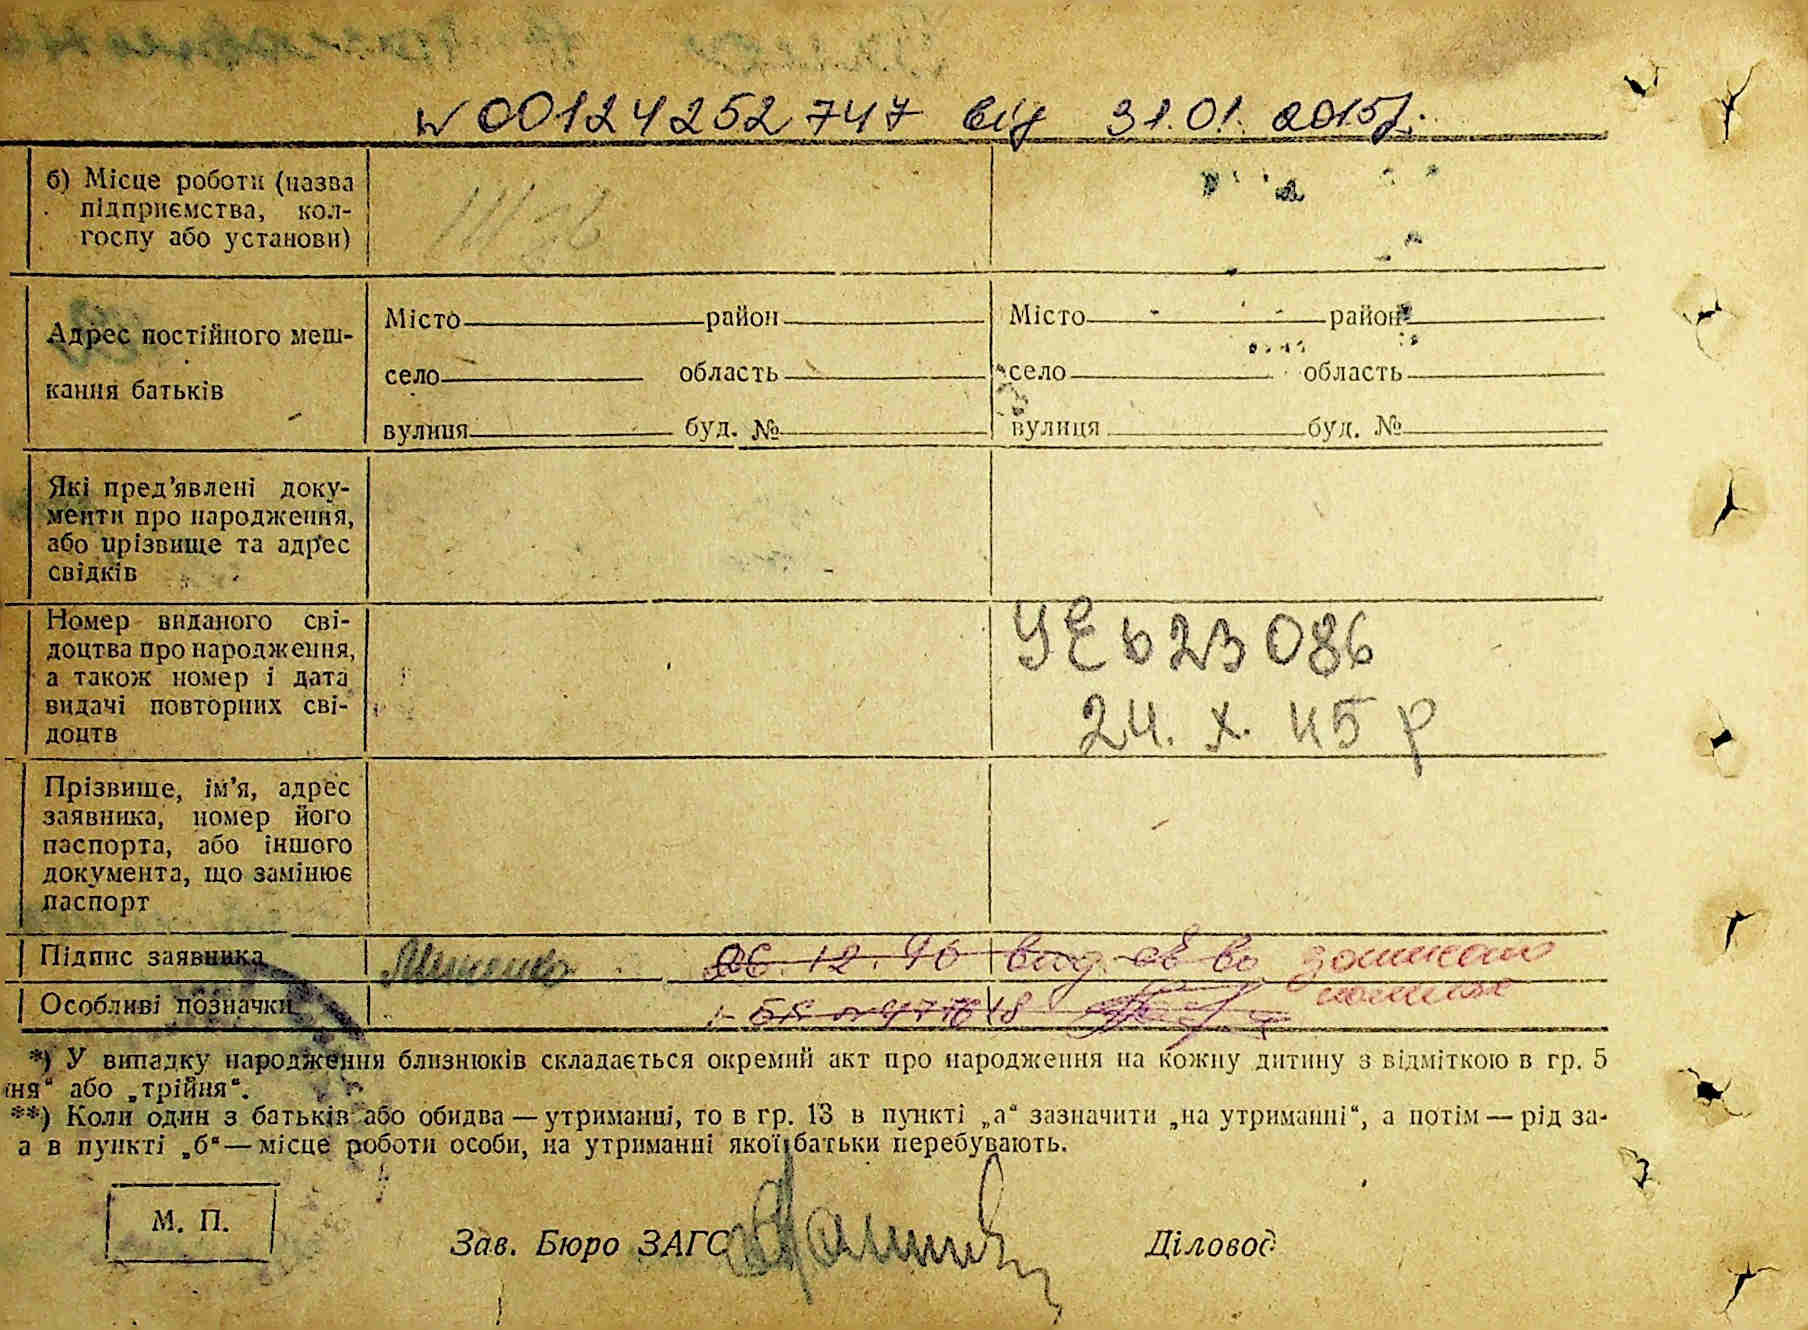 № 00124252747 від 31.01.2015р.
б) Місце роботи (назва
підприємства, кол-
госпу або установи)
Адрес постійного меш-
кання батьків
Місто район
село область
вулиця буд. №
Місто район
село область
вулиця буд. №
Які пред’явлені доку-
менти про народження,
або прізвище та адрес
свідків
Номер виданого сві-
доцтва про народження,
а також номер і дата
видачі повторних сві-
доцтв
УЕ 623086
24. X. 45 р
Прізвище, ім’я, адрес
заявника, номер його
паспорта, або іншого
документа, що замінює
паспорт
Підпис заявника
26.12.96 вид. св во
Особливі позначки
*) У випадку народження близнюків складається окремий акт про народження на кожну дитину з відміткою в гр. 5
ня“ або „трійня“.
**) Коли один з батьків або обидва — утриманці, то в гр. 13 в пункті „а“ зазначити „на утриманні“, а потім — рід за-
а в пункті „б“ — місце роботи особи, на утриманні якої батьки перебувають.
М. П.
Зав. Бюро ЗАГС
Діловод